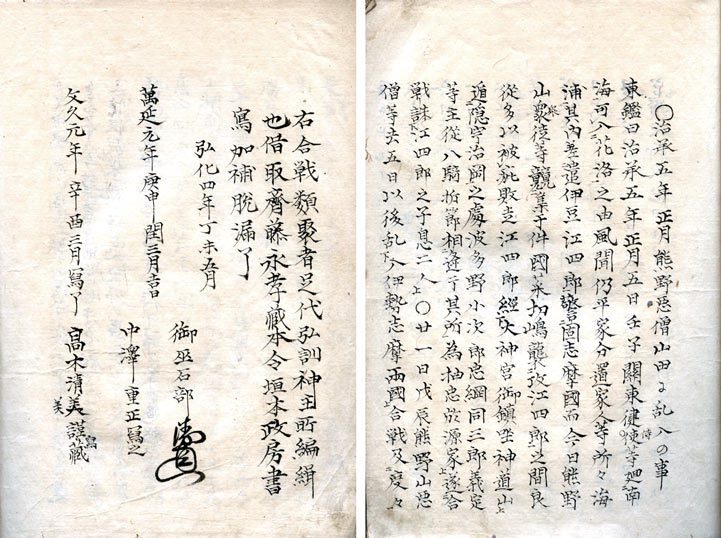 〇治承五年正月熊野悪僧山田に乱入の事
東鑑曰治承五年正月五日壬子関東健士等廻南
海可入花洛之由風聞仍平家分置家人等所々海
浦其内差遣伊豆江四郎警固志摩國而今日熊野
山衆徒等競集于件國菜切嶋襲攻江四郎之間良
從多以被疵敗走江四郎經大神宮御鎮坐神道山
遁隠宇治岡之處波多野小次郎忠綱同三郎義定
等主從八騎折節相逢于其所為抽忠於源家遂合
戦誅江四郎之子息二人〇廿一日戊辰熊野山悪
僧等去五日以後乱入伊勢志摩両國合戦及度々
右合戦類聚者足代弘訓神主所編緝
也借取齋藤永孝藏本令垣本政房書
寫加補脱漏了
弘化四年丁未五月
御巫石部
萬延元年庚申閏三月吉日
中澤重正寫之
文久元年辛酉三月寫了 高木清美謹藏
美
寫